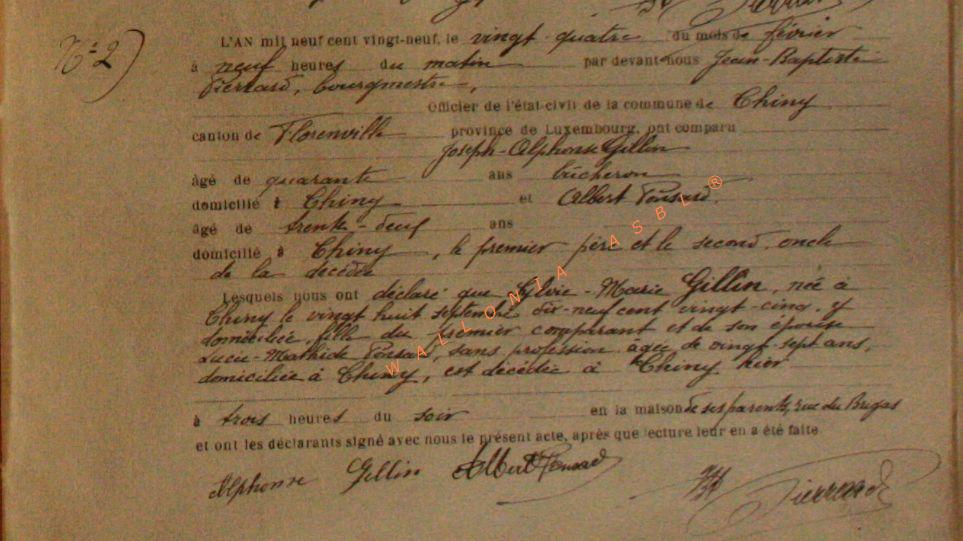 N° 2)
L'AN mil neuf cent vingt-neuf, le vingt-quatre du mois de février
à neuf heures du matin par devant nous Jean-Baptiste
Pierrard, bourgmestre,
Officier de l'état-civil de la commune de Chiny
canton de Florenville province de Luxembourg, ont comparu
Joseph-Alphonse Gillin
âgé de quarante ans bûcheron
domicilié à Chiny et Albert Ponsard.
âgé de trente-neuf ans
domicilié à Chiny, le premier père et le second oncle
de la décédée
Lesquels nous ont déclaré que Elvie-Marie Gillin, née à
Chiny le vingt huit septembre dix-neuf cent vingt-cinq, y
domiciliée, fille du premier comparant et de son épouse
Lucie-Mathilde Ponsard, sans profession âgée de vingt-sept ans,
domiciliée à Chiny, est décédée à Chiny hier
à trois heures du soir en la maison de ses parents, rue du
et ont les déclarants signé avec nous le présent acte, après que lecture leur en a été faite
Alphonse Gillin Albert Ponsard Pierrard
WALLONIA ASBL ®